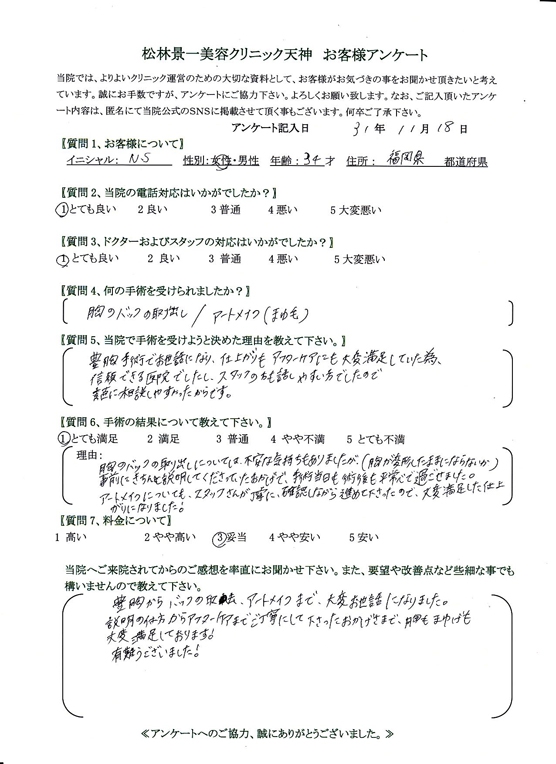 松林景一美容クリニック天神 お客様アンケート
当院では、よりよいクリニック運営のための大切な資料として、お客様がお気づきの事をお聞かせ頂きたいと考え
ています。誠にお手数ですが、アンケートにご協力下さい。よろしくお願い致します。なお、ご記入頂いたアンケ
ート内容は、匿名にて当院公式のSNSに掲載させて頂く事もございます。何卒ご了承下さい。
アンケート記入日 31年 11月 18日
〖質問1、お客様について〗
イニシャル: NS 性別:女性・男性 年齢:34才 住所: 福岡県 都道府県
〖質問2、当院の電話対応はいかがでしたか?〗
1とても良い 2良い 3普通 4悪い 5大変悪い
〖質問3、ドクターおよびスタッフの対応はいかがでしたか?〗
1とても良い 2 良い 3 普通 4悪い 5大変悪い
〖質問4、何の手術を受けられましたか?〗
胸のバックの取出し / アートメイク(まゆ毛)
〖質問5、当院で手術を受けようと決めた理由を教えて下さい。〗
豊胸手術でお世話になり、仕上がりもアフターケアにも大変満足していた為、
信頼できる医院でしたし、スタッフの方も話しやすい方でしたので
気軽に相談しやすかったからです。
〖質問6、手術の結果について教えて下さい。〗
1とても満足 2 満足 3 普通 4 やや不満 5 とても不満
理由:
胸のバックの取り出しについては、不安な気持ちもありましたが、(胸が変形したままにならないか)
事前にきちんと説明してくださっていたおかげで、手術当日も術後も平常心で過ごせました。
アートメイクについても、スタッフさんが丁寧に、確認しながら進めて下さったので、大変満足した仕上
がりになりました!
〖質問7、料金について〗
1 高い 2 やや高い 3妥当 4やや安い 5安い
当院へご来院されてからのご感想を率直にお聞かせ下さい。また、要望や改善点など些細な事でも
構いませんので教えて下さい。
豊胸から バックの取去、アートメイクまで、大変お世話になりました。
説明の仕方からアフターケアまでご丁寧にして下さったおかげさまで、胸も まゆげも
大変満足しております!
有難うございました!
≪アンケートへのご協力、誠にありがとうございました。≫